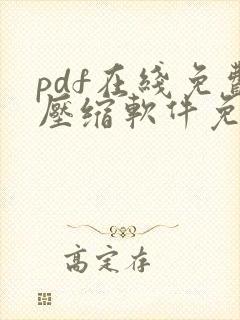 pdf在綫免費
壓缩軟件免
高定存